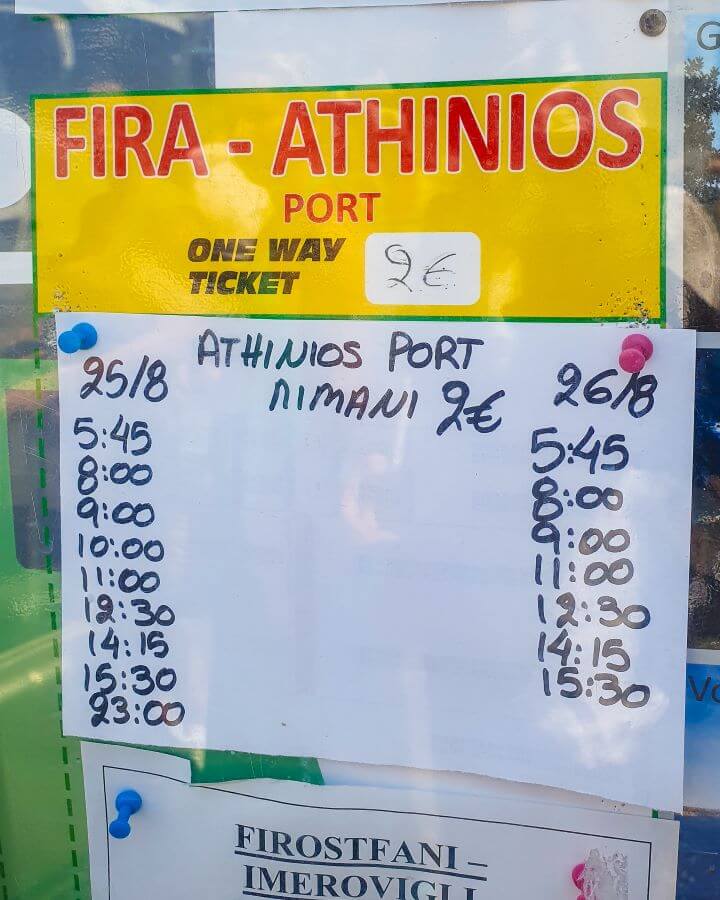 FIRA - ATHINIOS
PORT
ONE WAY
TICKET
2€
ATHINIOS PORT
ΛIMANI 2€
25/8
5:45
8:00
9:00
10:00
11:00
12:30
14:15
15:30
23:00
26/8
5:45
8:00
9:00
11:00
12:30
14:15
15:30
FIROSTFANI –
IMEROVIGLI
G
Vo